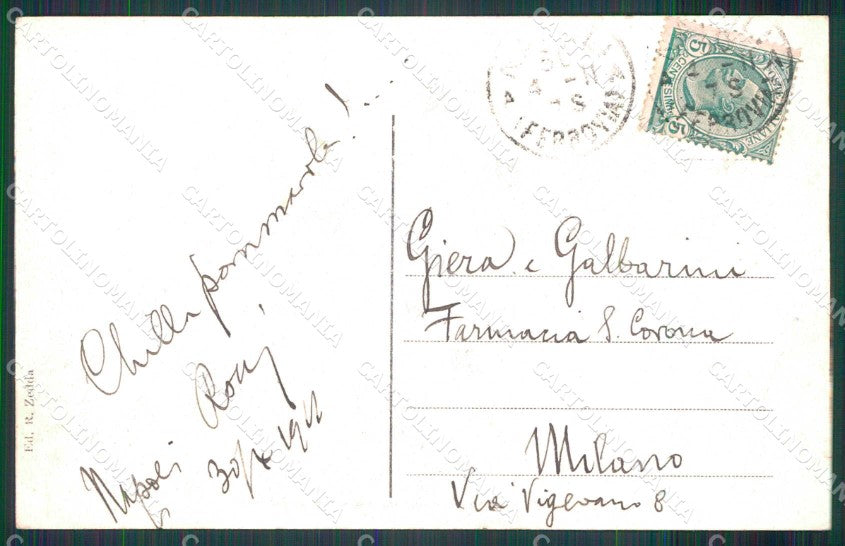 Chilli pommarole!...
Napoli
Ed. R. Zedda
(FERROVIA)
5 CENTESIMI 5
Giera e Galbarini
Farmacia S. Corona
Milano
Via Vigevano 8
CARTOLINOMANIA